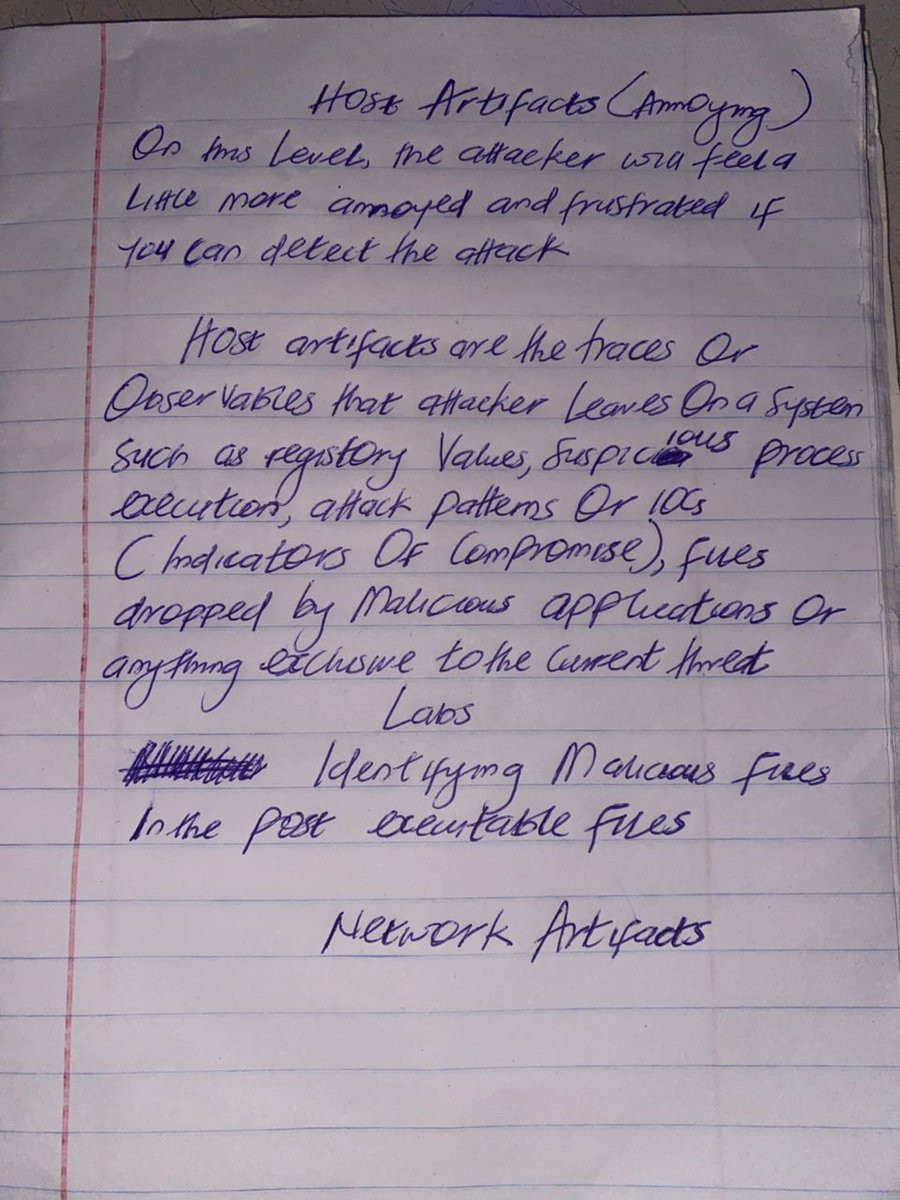 Host Artifacts (Annoying)
On this Level, the attacker will feel a
Little more annoyed and frustrated if
you can detect the attack
Host artifacts are the traces Or
Observables that attacker Leaves On a System
Such as registory Values, Suspicious process
execution, attack patterns Or IOCs
(Indicators Of Compromise), files
dropped by Malicious applications Or
anything exclusive to the Current threat
Labs
Identifying Malicious files
In the post executable files
Network Artifacts